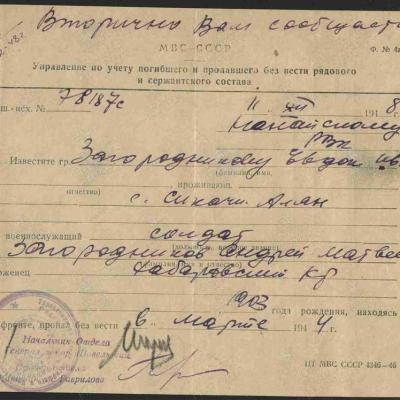 Вторично Вам сообщаем
МВС—СССР
Ф. № 4а
Управление по учету погибшего и пропавшего без вести рядового
и сержантского состава
ш.-исх. № 78187с
11 XII 1948
Нанайскому
РВК
Известите гр. Загородникову Евдок
(фамилия, имя,
отчество)
проживающ.
с. Сикачи-Алян
военнослужащий солдат
Загородников Андрей Матвее
роженец Хабаровский кр
1903 года рождения, находясь
фронте, пропал без вести в марте 1944
Начальник Отдела
ПТ МВС СССР 4346—46